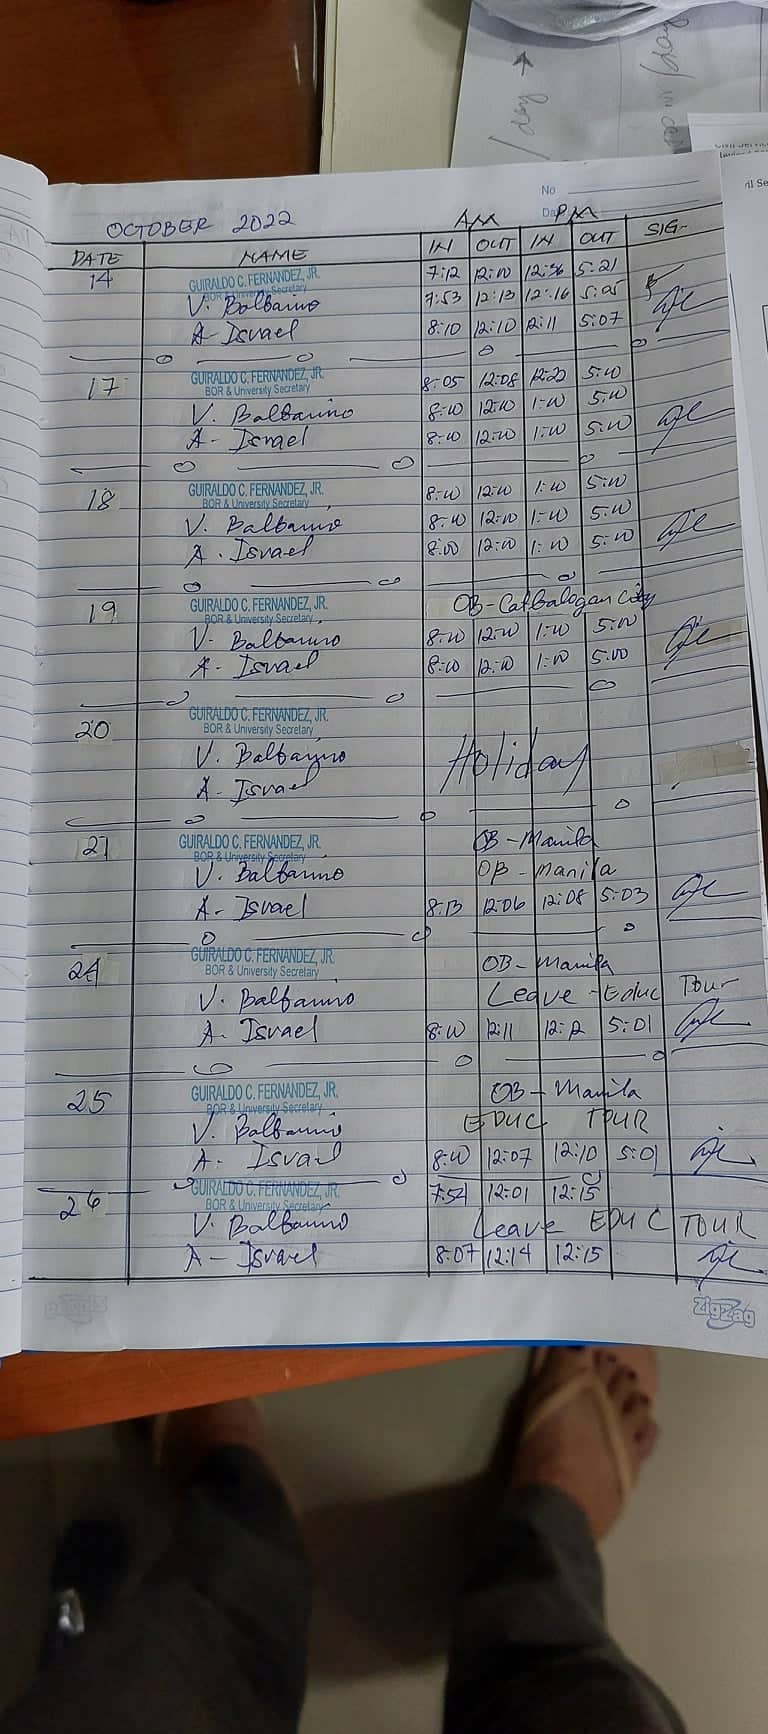 No
OCTOBER 2022 AM Da PM
DATE NAME IN OUT IN OUT SIG-
14 GUIRALDO C. FERNANDEZ, JR. 7:12 12:00 12:36 5:21
BOR & University Secretary
V. Balbarino 7:53 12:13 12:16 5:05
A- Israel 8:10 12:10 12:11 5:07
17 GUIRALDO C. FERNANDEZ, JR. 8:05 12:08 12:22 5:00
BOR & University Secretary
V. Balbarino 8:00 12:00 1:00 5:00
A- Israel 8:00 12:00 1:00 5:00
18 GUIRALDO C. FERNANDEZ, JR. 8:00 12:00 1:00 5:00
BOR & University Secretary
V. Balbarino 8:00 12:00 1:00 5:00
A. Israel 8:00 12:00 1:00 5:00
19 GUIRALDO C. FERNANDEZ, JR. OB-Catbalogan City
BOR & University Secretary
V. Balbarino 8:00 12:00 1:00 5:00
A- Israel 8:00 12:00 1:00 5:00
20 GUIRALDO C. FERNANDEZ, JR.
BOR & University Secretary
V. Balbarino Holiday
A- Israel
21 GUIRALDO C. FERNANDEZ, JR. OB-Manila
BOR & University Secretary
V. Balbarino OB-Manila
A- Israel 8:13 12:06 12:08 5:03
24 GUIRALDO C. FERNANDEZ, JR. OB-Manila
BOR & University Secretary
V. Balbarino Leave-Educ Tour
A. Israel 8:00 12:11 12:12 5:01
25 GUIRALDO C. FERNANDEZ, JR. OB-Manila
BOR & University Secretary
V. Balbarino EDUC TOUR
A. Israel 8:00 12:07 12:10 5:01
26 GUIRALDO C. FERNANDEZ, JR. 7:54 12:01 12:15
BOR & University Secretary
V. Balbarino Leave EDUC TOUR
A- Israel 8:07 12:14 12:15
ZigZag